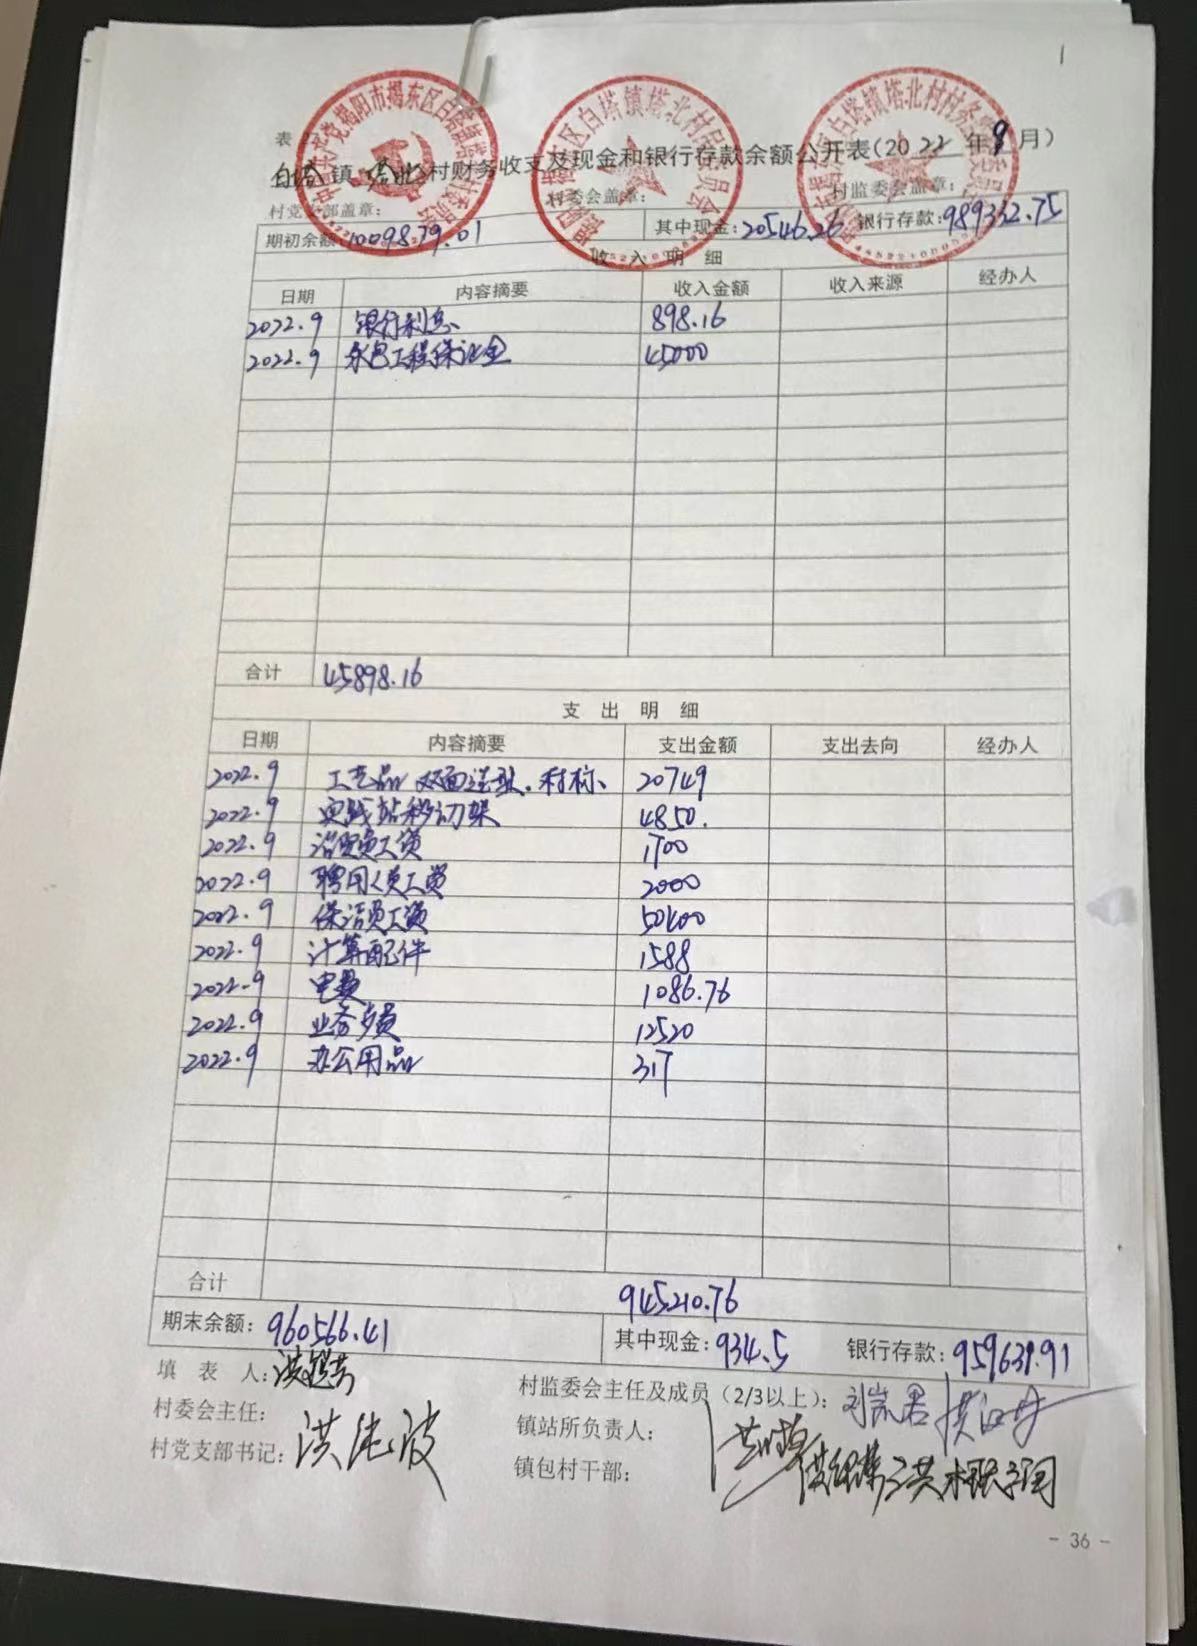 表
白塔镇 塔北村财务收支及现金和银行存款余额公开表(2022年9月)
村党支部盖章: 村委会盖章: 村监委会盖章:
期初余额:1009879.01 其中现金:20546.26 银行存款:989332.75
收入明细
日期 内容摘要 收入金额 收入来源 经办人
2022.9 银行利息 898.16
2022.9 承包工程保证金 45000
合计 45898.16
支出明细
日期 内容摘要 支出金额 支出去向 经办人
2022.9 工艺品双面造型.村标、 20749
2022.9 实践站移动架 4850.
2022.9 治贸员工资 1700
2022.9 聘用人员工资 2000
2022.9 保洁员工资 50400
2022.9 计算配件 1588
2022.9 电费 1086.76
2022.9 业务费 12520
2022.9 办公用品 317
合计 945210.76
期末余额:960566.41 其中现金:934.5 银行存款:959631.91
填表人:
村委会主任:
村党支部书记:
村监委会主任及成员(2/3以上):
镇站所负责人:
镇包村干部:
- 36 -